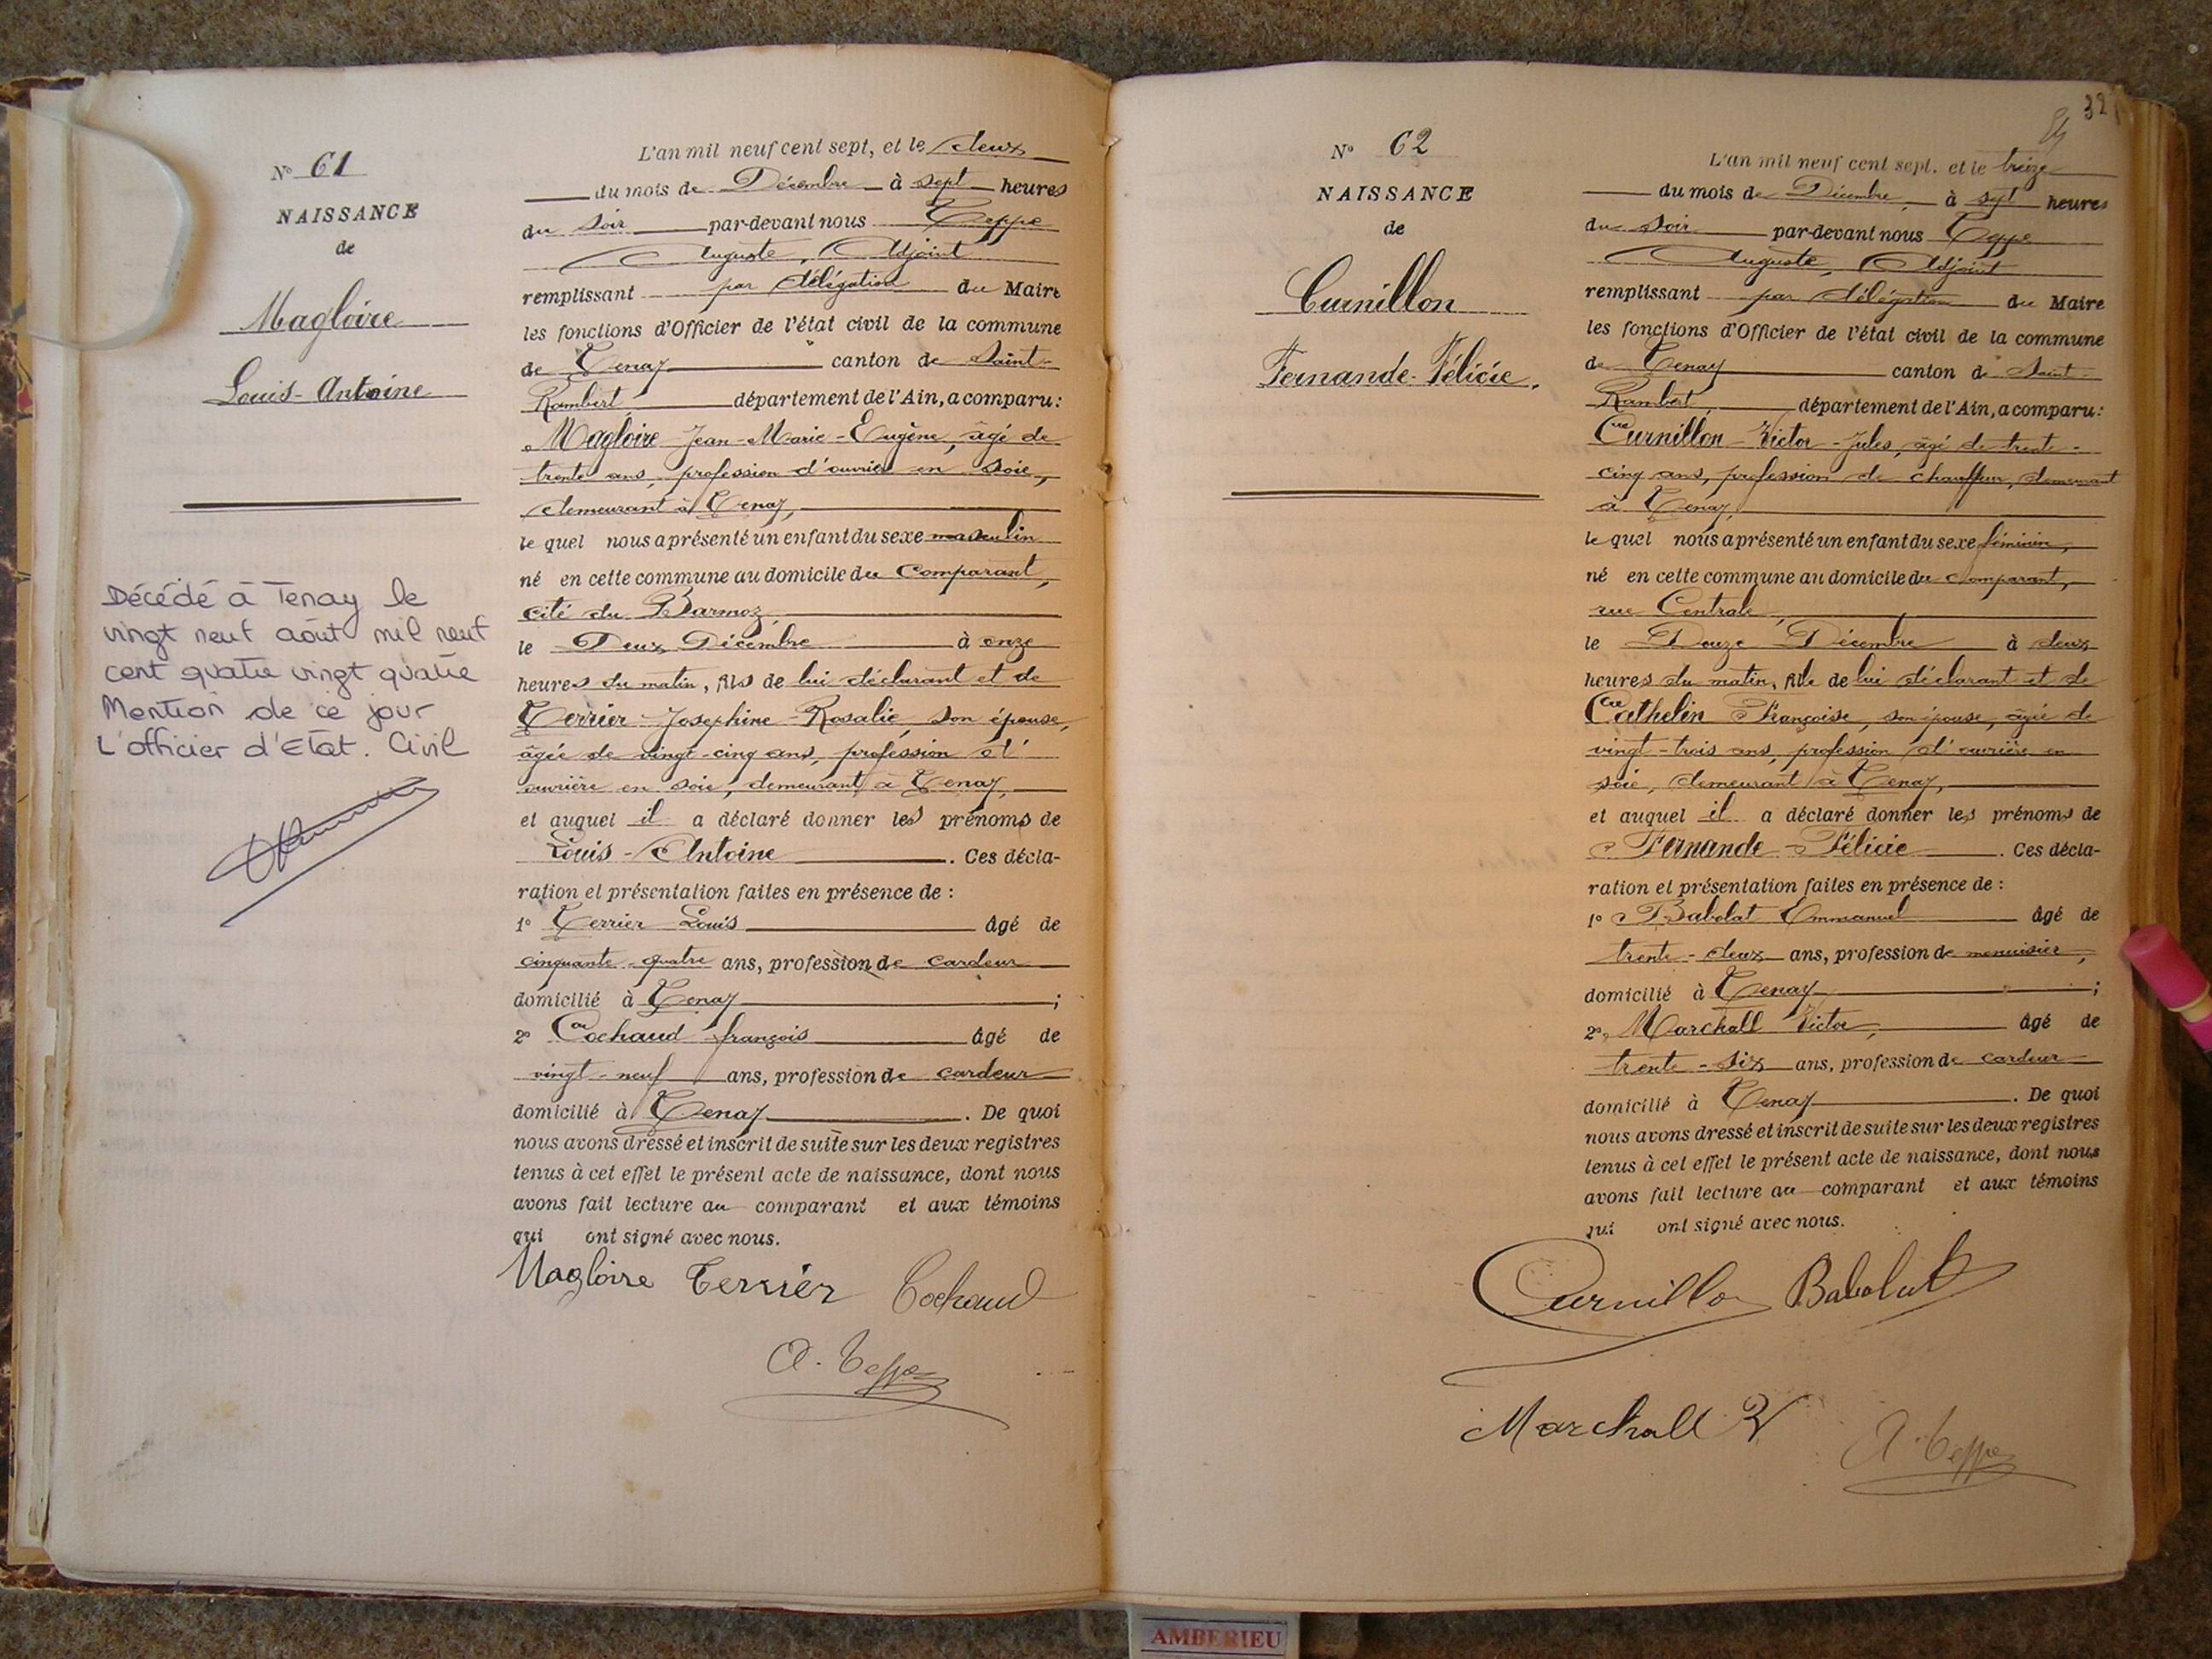 N° 61
NAISSANCE
de
Magloire
Louis-Antoine
Décédé à Tenay le
vingt neuf août mil neuf
cent quatre vingt quatre
Mention de ce jour
L'officier d'Etat. Civil
L'an mil neuf cent sept, et le deux
du mois de Décembre à sept heures
du soir par-devant nous Teppe
Auguste, Adjoint
remplissant par délégation du Maire
les fonctions d'Officier de l'état civil de la commune
de Tenay canton de Saint-
Rambert, département de l'Ain, a comparu:
Magloire Jean-Marie-Eugène, âgé de
trente ans, profession d'ouvrier en soie,
demeurant à Tenay,
le quel nous a présenté un enfant du sexe masculin
né en cette commune au domicile du Comparant,
cité du Barmoz,
le Deux Décembre à onze
heures du matin, fils de lui déclarant et de
Terrier Josephine-Rosalie, son épouse,
âgée de vingt-cinq ans, profession d'
ouvrière en soie, demeurant à Tenay,
et auquel il a déclaré donner les prénoms de
Louis-Antoine. Ces décla-
ration et présentation faites en présence de :
1° Terrier Louis âgé de
cinquante-quatre ans, profession de cardeur
domicilié à Tenay ;
2° Cochaud françois âgé de
vingt-neuf ans, profession de cardeur
domicilié à Tenay. De quoi
nous avons dressé et inscrit de suite sur les deux registres
tenus à cet effet le présent acte de naissance, dont nous
avons fait lecture au comparant et aux témoins
qui ont signé avec nous.
Magloire Terrier Cochaud
A. Teppe
32
N° 62
NAISSANCE
de
Curnillon
Fernande-Félicie.
L'an mil neuf cent sept, et le treize
du mois de Décembre, à sept heures
du soir par-devant nous Teppe
Auguste, Adjoint
remplissant par délégation du Maire
les fonctions d'Officier de l'état civil de la commune
de Tenay canton de Saint-
Rambert, département de l'Ain, a comparu:
Curnillon Victor-Jules, âgé de trente-
cinq ans, profession de chauffeur, demeurant
à Tenay,
le quel nous a présenté un enfant du sexe féminin,
né en cette commune au domicile du comparant,
rue Centrale,
le Douze Décembre à deux
heures du matin, fille de lui déclarant et de
Cathelin Françoise, son épouse, âgée de
vingt-trois ans, profession d'ouvrière en
soie, demeurant à Tenay,
et auquel il a déclaré donner les prénoms de
Fernande-Félicie. Ces décla-
ration et présentation faites en présence de :
1° Babolat Emmanuel âgé de
trente-deux ans, profession de menuisier,
domicilié à Tenay ;
2° Marchall Victor, âgé de
trente-six ans, profession de cardeur
domicilié à Tenay. De quoi
nous avons dressé et inscrit de suite sur les deux registres
tenus à cet effet le présent acte de naissance, dont nous
avons fait lecture au comparant et aux témoins
qui ont signé avec nous.
Curnillon Babolat
Marchall V
A. Teppe
AMBERIEU